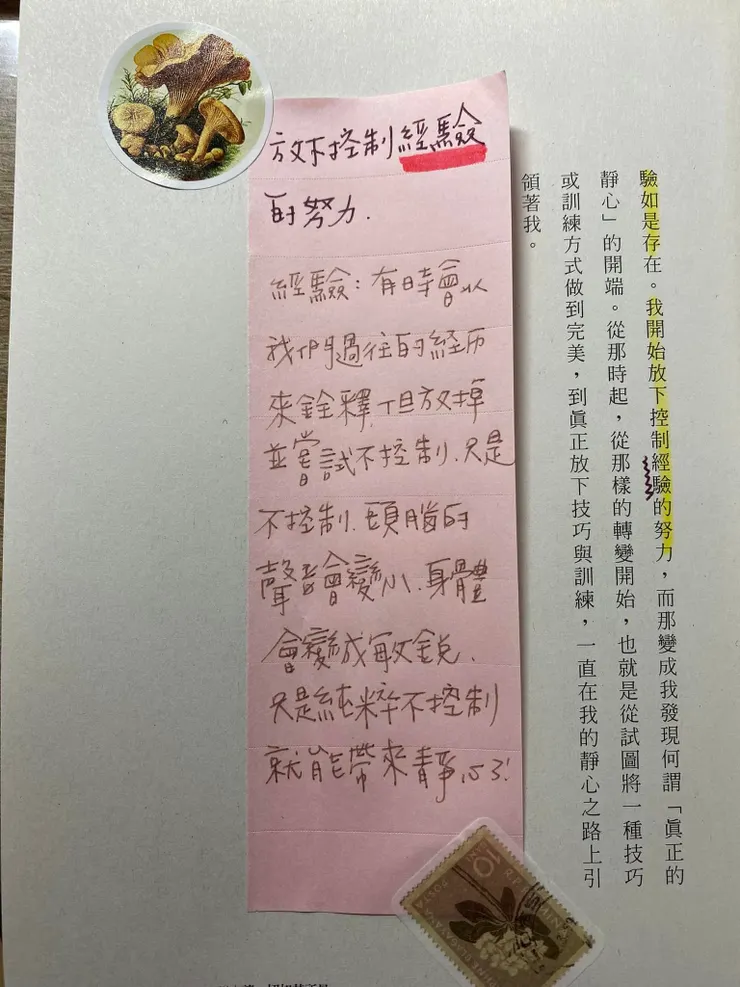 放下控制經驗
的努力.
經驗：有時會以
我們過往的経历
來詮釋,但放掉
並嘗試不控制.只是
不控制.頭腦的
聲音會變小.身體
會變成敏銳.
只是純粹不控制
就能帶來靜心了!
驗如是存在。我開始放下控制經驗的努力，而那變成我發現何謂「眞正的
靜心」的開端。從那時起，從那樣的轉變開始，也就是從試圖將一種技巧
或訓練方式做到完美，到眞正放下技巧與訓練，一直在我的靜心之路上引
領著我。
10